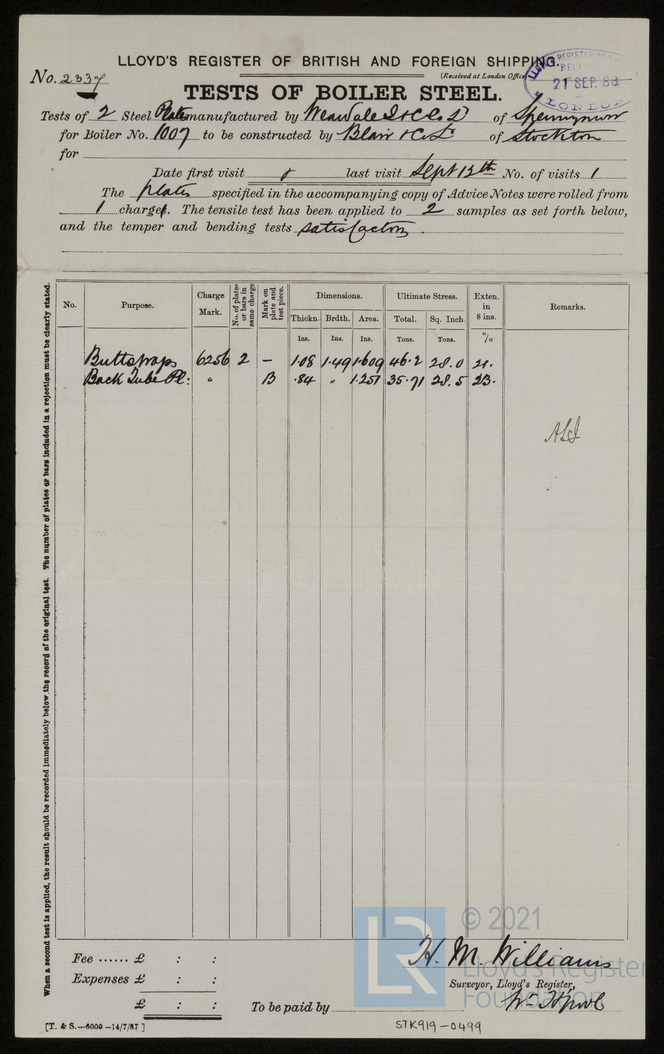 LLOYD'S REGISTER OF BRITISH AND FOREIGN SHIPPING.
No. 2337
(Received at London Office
21 SEP. 88
LONDON
TESTS OF BOILER STEEL.
Tests of 2 Steel Plates manufactured by Weardale I & C Co Ld of Spennymoor
for Boiler No. 1007 to be constructed by Blair & Co Ld of Stockton
for
Date first visit last visit Sept 12th No. of visits 1
The plates specified in the accompanying copy of Advice Notes were rolled from
1 charge. The tensile test has been applied to 2 samples as set forth below,
and the temper and bending tests satisfactory.
No. Purpose. Charge Mark. No. of plates or bars in same charge Mark on plate and test piece. Dimensions. Ultimate Stress. Exten. in 8 ins. Remarks.
Thickn. Brdth. Area. Total. Sq. Inch.
Ins. Ins. Ins. Tons. Tons. %
Buttstraps 6256 2 – 1.08 1.49 1.609 46.2 28.0 21.
Back Tube Pl: " B .84 " 1.251 35.71 28.5 23.
When a second test is applied, the result should be recorded immediately below the record of the original test. The number of plates or bars included in a rejection must be clearly stated.
Fee ...... £ : :
Expenses £ : :
£ : :
H. M. Williams
Surveyor, Lloyd's Register,
To be paid by
[T. & S.—6000—14/7/87]
STK919-0499
LR
© 2021
Lloyd's Register
Foundation